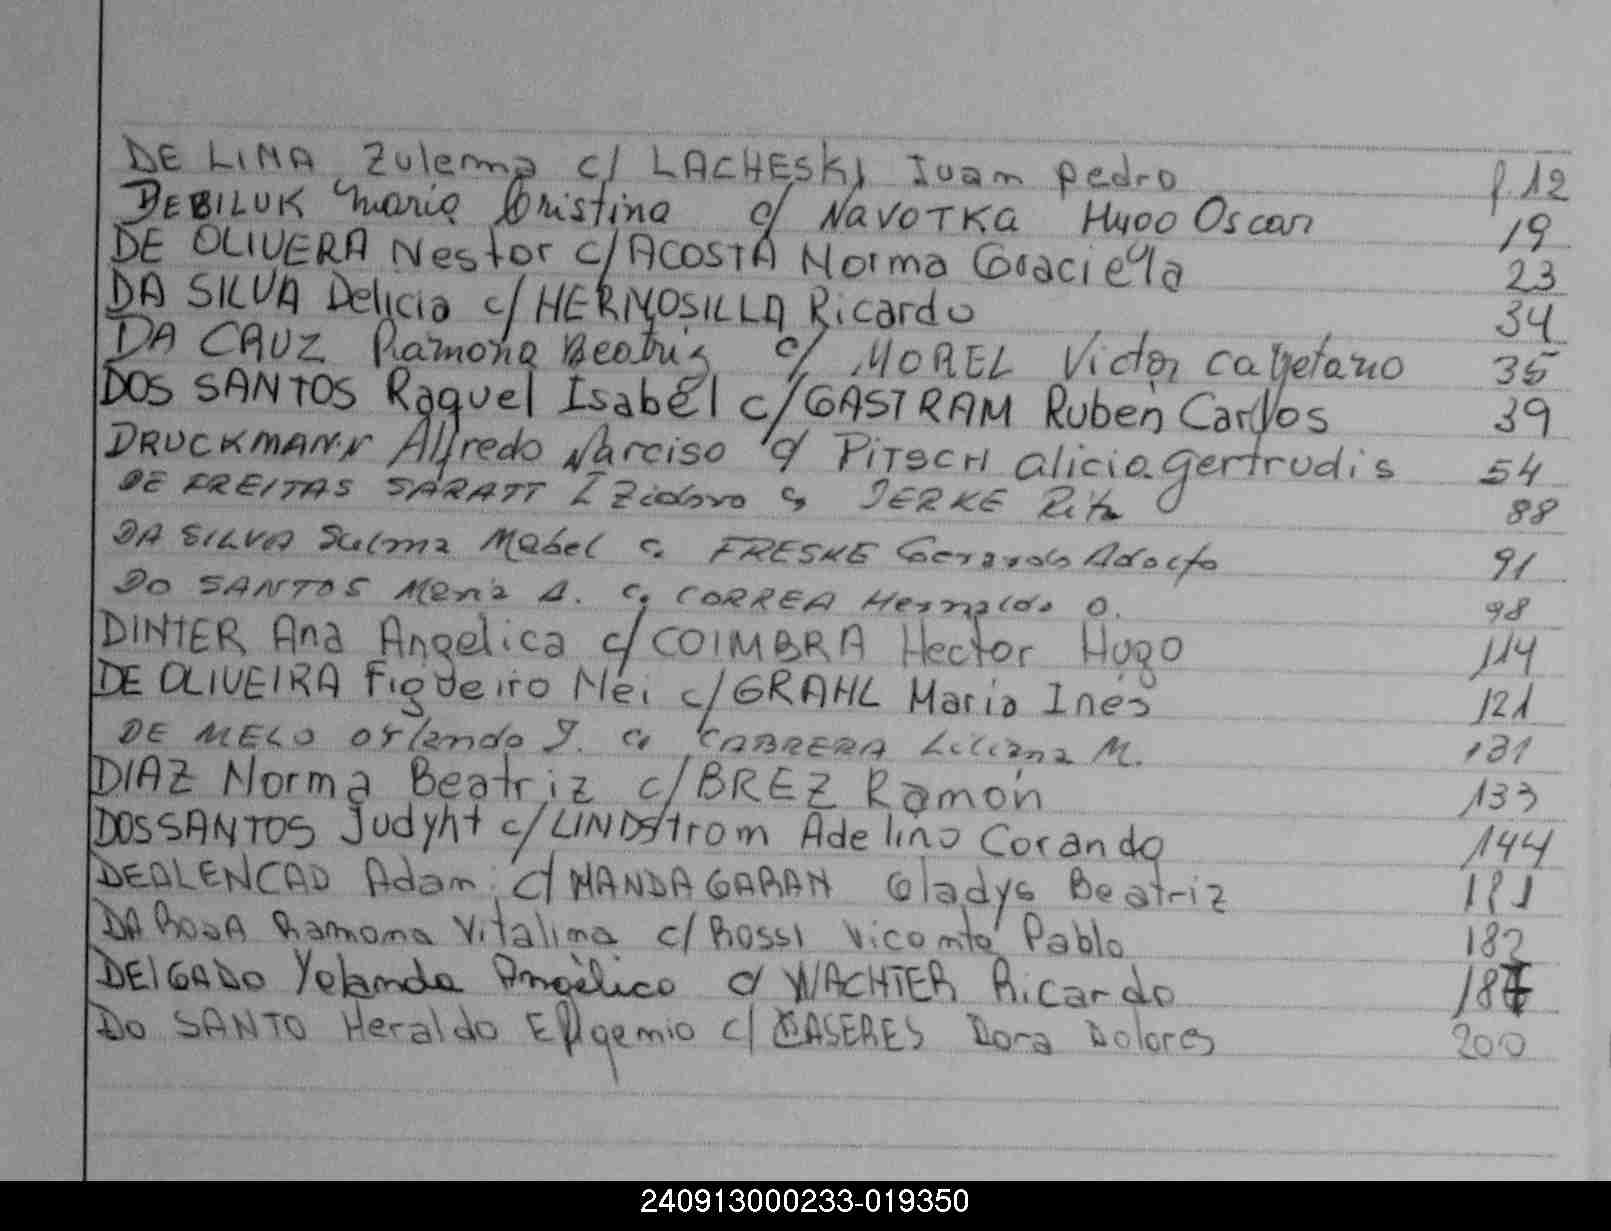 DE LIMA Zulema c/ LACHESKI Juan pedro f.12
DEBILUK Maria Cristina c/ NAVOTKA Hugo Oscar 19
DE OLIVERA Nestor c/ACOSTA Norma Graciela 23
DA SILVA Delicia c/HERMOSILLA Ricardo 34
DA CRUZ Ramona Beatriz c/ MOREL Victor Cayetano 35
DOS SANTOS Raquel Isabel c/GASTRAM Ruben Carlos 39
DRUCKMANN Alfredo Narciso c/ PITSCH alicia gertrudis 54
DE FREITAS SARATT IZidoro c, JERKE Rita 88
DA SILVA Sulma Mabel c. FRESKE Gerardo Adolfo 91
DO SANTOS Maria A. c. CORREA Hernaldo O. 98
DINTER Ana Angelica c/COIMBRA Hector Hugo 114
DE OLIVEIRA Figueiro Nei c/GRAHL Maria Inés 121
DE MELO Orlando J. c. CABRERA Liliana M. 131
DIAZ Norma Beatriz c/BREZ Ramón 133
DOSSANTOS Judyht c/LINDStrom Adelino Corando 144
DEALENCAD Adam c/ MANDAGARAN Gladys Beatriz 181
DA ROSA Ramona Vitalina c/ROSSI Vicente Pablo 182
DELGADO Yolanda Angélica c/ WACHTER Ricardo
DO SANTO Heraldo Efigemio c/ CASERES Dora Dolores 200
240913000233-019350